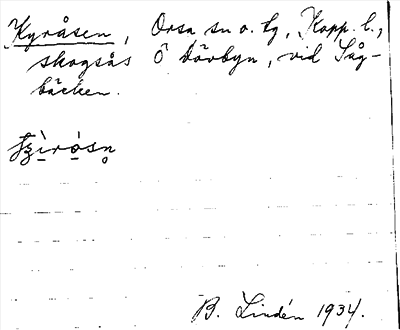 Kyråsen, Orsa sn o. tg, Kopp. l.,
skogsås Ö Börbyn, vid Såg-
bäcken.
B. Lindén 1934.